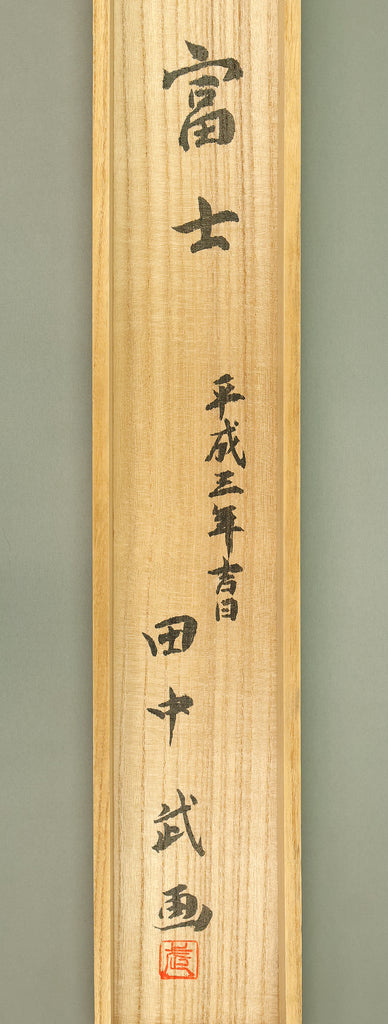 富士
平成三年吉日
田中武画